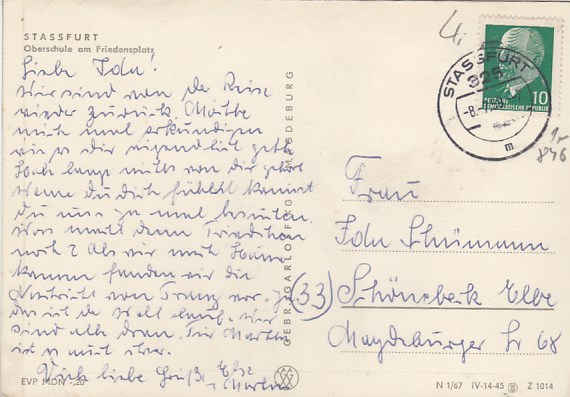 STASSFURT
Oberschule am Friedensplatz
Liebe Ida!
Wir sind von der Reise
wieder zurück. Möchte
mich mal erkundigen
wie es dir eigendlich geht.
Habe lange nichts von dir gehört
wenn du dich fühlst kannst
du uns ja mal besuchen.
Was macht denn Friedchen
noch? Als wir nach Hause
kamen fanden wir die
Nachricht von Franz vor. Ja
das ist der Welt lauf. Wir
sind alle dran. Für
ist es nun über.
Viele liebe Grüße Else
EVP MDN -,20
GEBR. GARLOFF KG MAGDEBURG
STASSFURT
325
-8.
m
10
DEUTSCHE
DEMOKRATISCHE REPUBLIK
846
Frau
Ida Schümann
(33) Schönebeck Elbe
Magdeburger Sr 68
N 1/67 IV-14-45 Z 1014